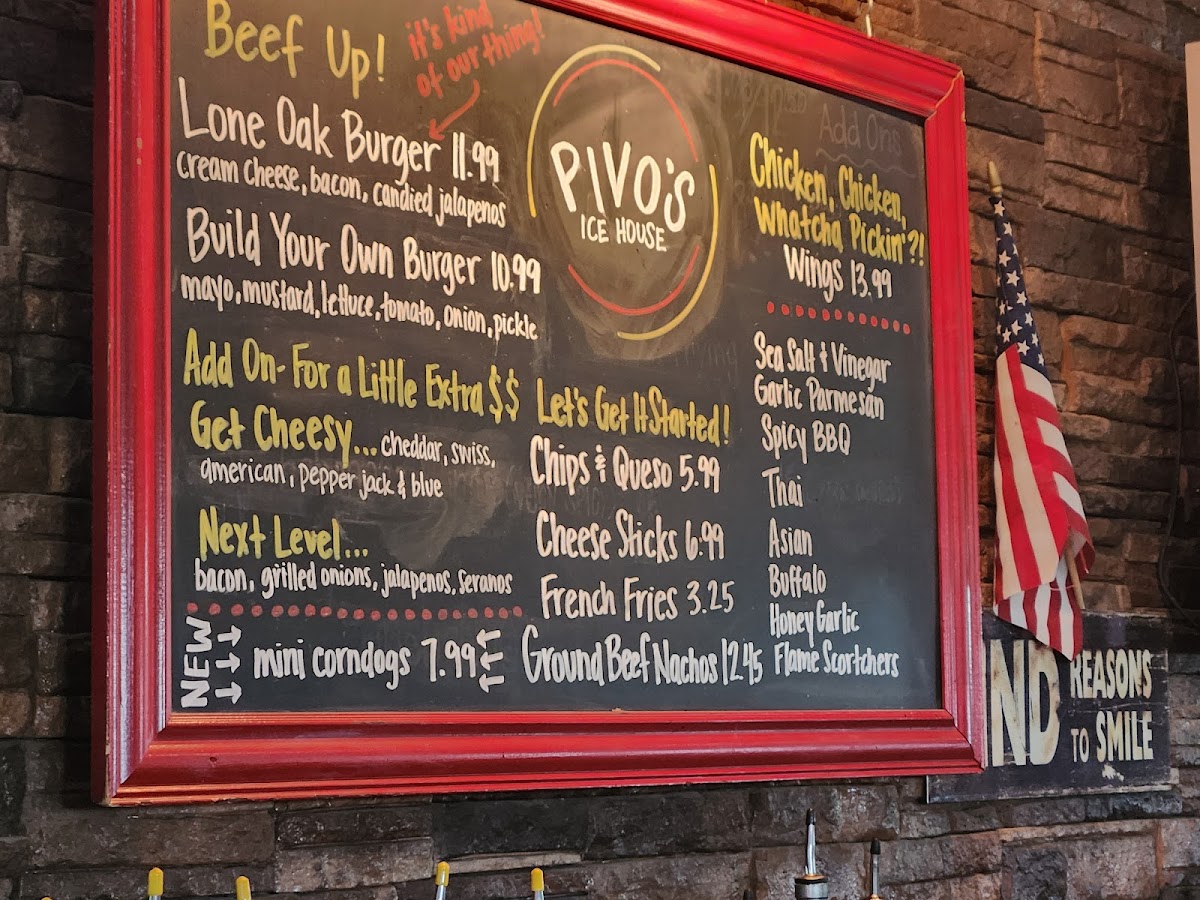 Beef Up!
it's kind
of our thing!
Lone Oak Burger 11.99
cream cheese, bacon, candied jalapenos
Build Your Own Burger 10.99
mayo, mustard, lettuce, tomato, onion, pickle
Add On-For a Little Extra $$
Get Cheesy... cheddar, swiss,
american, pepper jack & blue
Next Level...
bacon, grilled onions, jalapenos, seranos
NEW
mini corndogs 7.99
PIVO'S
ICE HOUSE
Let's Get It Started!
Chips & Queso 5.99
Cheese Sticks 6.99
French Fries 3.25
Ground Beef Nachos 12.45
Add Ons
Chicken, Chicken,
Whatcha Pickin'?!
Wings 13.99
Sea Salt & Vinegar
Garlic Parmesan
Spicy BBQ
Thai
Asian
Buffalo
Honey Garlic
Flame Scortchers
ND REASONS
TO SMILE